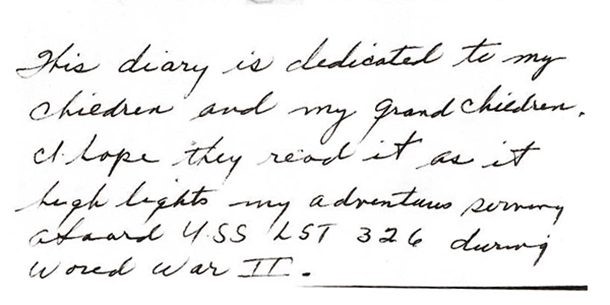 This diary is dedicated to my
children and my grandchildren.
I hope they read it as it
high lights my adventures serving
aboard USS LST 326 during
World War II.